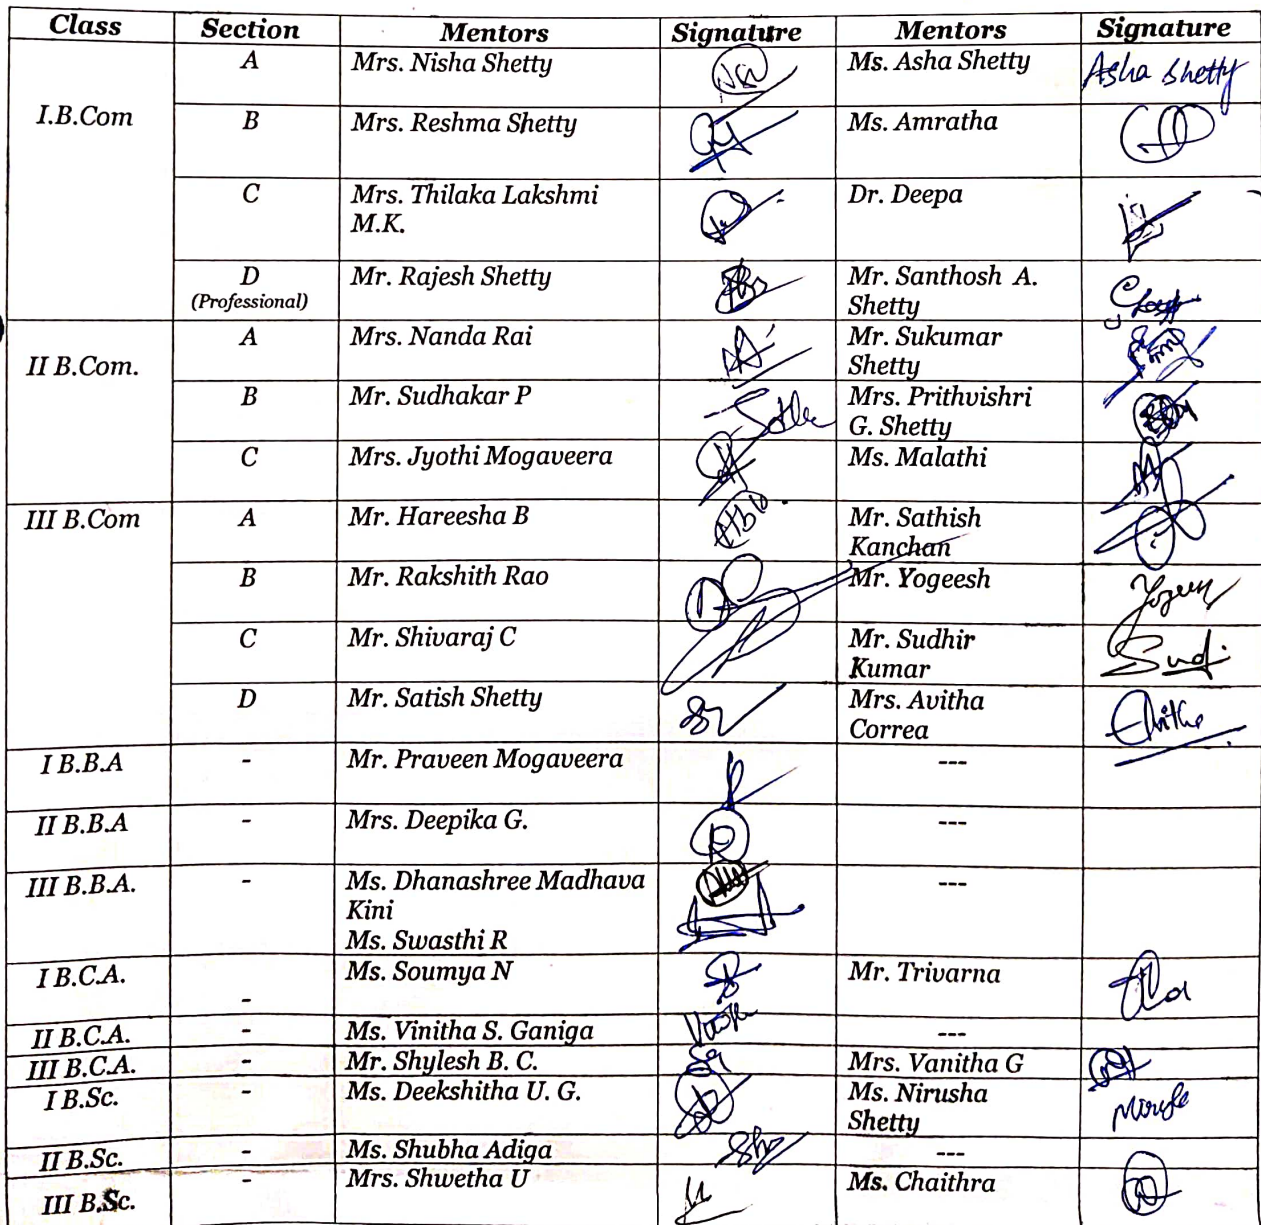 Class Section Mentors Signature Mentors Signature
A Mrs. Nisha Shetty Ms. Asha Shetty Asha Shetty
I.B.Com B Mrs. Reshma Shetty Ms. Amratha
C Mrs. Thilaka Lakshmi Dr. Deepa
M.K.
D Mr. Rajesh Shetty Mr. Santhosh A.
(Professional) Shetty
II B.Com. A Mrs. Nanda Rai Mr. Sukumar
Shetty
B Mr. Sudhakar P Mrs. Prithvishri
G. Shetty
C Mrs. Jyothi Mogaveera Ms. Malathi
III B.Com A Mr. Hareesha B Mr. Sathish
Kanchan
B Mr. Rakshith Rao Mr. Yogeesh
C Mr. Shivaraj C Mr. Sudhir
Kumar
D Mr. Satish Shetty Mrs. Avitha
Correa
I B.B.A - Mr. Praveen Mogaveera ---
II B.B.A - Mrs. Deepika G. ---
III B.B.A. - Ms. Dhanashree Madhava ---
Kini
Ms. Swasthi R
I B.C.A. - Ms. Soumya N Mr. Trivarna
II B.C.A. - Ms. Vinitha S. Ganiga ---
III B.C.A. - Mr. Shylesh B. C. Mrs. Vanitha G
I B.Sc. - Ms. Deekshitha U. G. Ms. Nirusha
Shetty
II B.Sc. - Ms. Shubha Adiga ---
III B.Sc. - Mrs. Shwetha U Ms. Chaithra